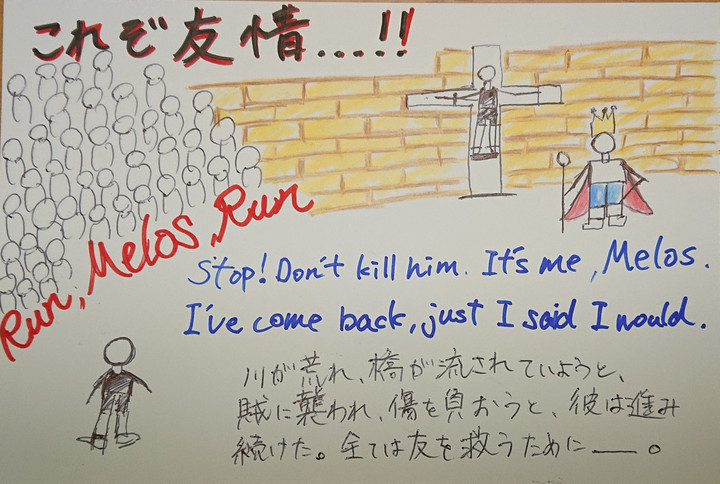 これぞ友情....!!
Run, Melos, Run
Stop! Don't kill him. It's me, Melos.
I've come back, just I said I would.
川が荒れ、橋が流されていようと、
賊に襲われ、傷を負おうと、彼は進み
続けた。全ては友を救うために――。